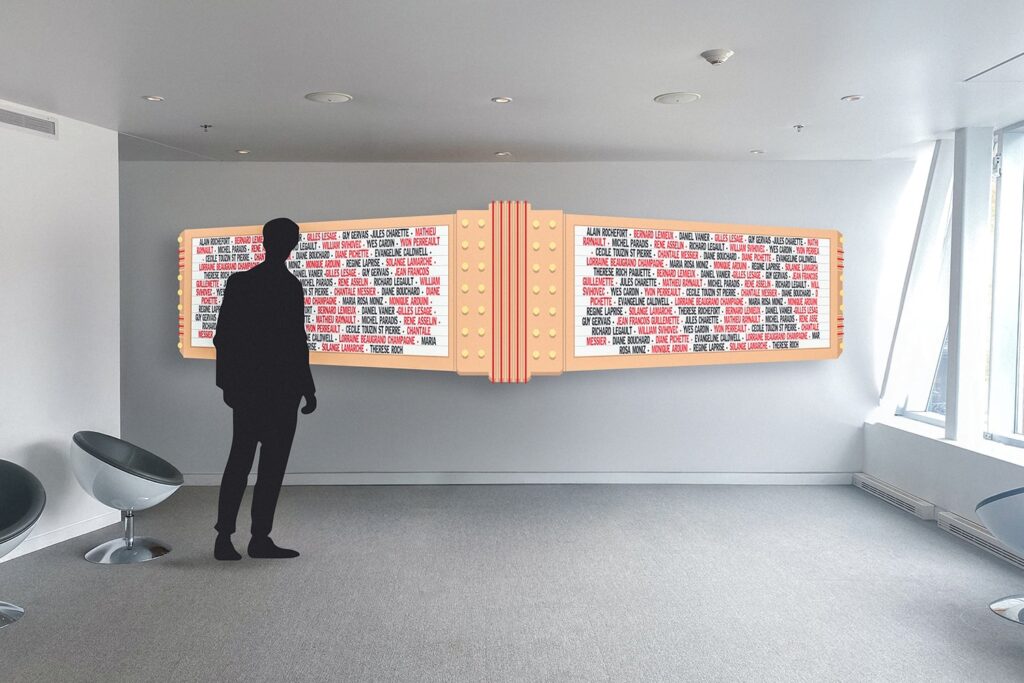 ALAIN ROCHEFORT - BERNARD - GILLES LESAGE - GUY GERVAIS -JULES CHARETTE - MATHIEU
RAYNAULT - MICHEL PARADIS - RENE LEGAULT - WILLIAM SVIHOVEC - YVES CARDIN - YVON PERREAULT
- CECILE TOUZIN ST PIERRE - DIANE BOUCHARD - DIANE PICHETTE - EVANGELINE CALDWELL -
LORRAINE BEAUGRAND CHAMPAGNE - MONIZ - MONIQUE ARDUINI - REGINE LAPRISE - SOLANGE LAMARCHE -
THERESE ROCH - DANIEL VANIER -GILLES LESAGE - GUY GERVAIS - JEAN FRANCOIS
GUILLEMETTE - RENE ASSELIN - RICHARD LEGAULT - WILLIAM
SVIHOVEC - ST PIERRE - CHANTALE MESSIER - DIANE BOUCHARD - DIANE
PICHETTE - CHAMPAGNE - MARIA ROSA MONIZ - MONIQUE ARDUINI -
REGINE - BERNARD LEMIEUX - DANIEL VANIER -GILLES LESAGE -
GUY GERVAIS - MATHIEU RAYNAULT - MICHEL PARADIS - RENE ASSELIN -
RICHARD - YVON PERREAULT - CECILE TOUZIN ST PIERRE - CHANTALE
MESSIER - LORRAINE BEAUGRAND CHAMPAGNE - MARIA
- SOLANGE LAMARCHE - THERESE ROCH
ALAIN ROCHEFORT - BERNARD LEMIEUX - DANIEL VANIER - GILLES LESAGE - GUY GERVAIS -JULES CHARETTE - MATH
RAYNAULT - MICHEL PARADIS - RENE ASSELIN - RICHARD LEGAULT - WILLIAM SVIHOVEC - YVES CARDIN - YVON PERREAULT
- CECILE TOUZIN ST PIERRE - CHANTALE MESSIER - DIANE BOUCHARD - DIANE PICHETTE - EVANGELINE CALDWELL -
LORRAINE BEAUGRAND CHAMPAGNE - MARIA ROSA MONIZ - MONIQUE ARDUINI - REGINE LAPRISE - SOLANGE LAMARCH
THERESE ROCH PAQUETTE - BERNARD LEMIEUX - DANIEL VANIER -GILLES LESAGE - GUY GERVAIS - JEAN FRANCOIS
GUILLEMETTE - JULES CHARETTE - MATHIEU RAYNAULT - MICHEL PARADIS - RENE ASSELIN - RICHARD LEGAULT - WILLIAM
SVIHOVEC - YVES CARDIN - YVON PERREAULT - CECILE TOUZIN ST PIERRE - CHANTALE MESSIER - DIANE BOUCHARD - DIANE
PICHETTE - EVANGELINE CALDWELL - LORRAINE BEAUGRAND CHAMPAGNE - MARIA ROSA MONIZ - MONIQUE ARDUINI
REGINE LAPRISE - SOLANGE LAMARCHE - THERESE ROCHEFORT - BERNARD LEMIEUX - DANIEL VANIER -GILLES LESAG
GUY GERVAIS - JEAN FRANCOIS GUILLEMETTE - JULES CHARETTE - MATHIEU RAYNAULT - MICHEL PARADIS - RENE ASSE
RICHARD LEGAULT - WILLIAM SVIHOVEC - YVES CARDIN - YVON PERREAULT - CECILE TOUZIN ST PIERRE - CHANTALE
MESSIER - DIANE BOUCHARD - DIANE PICHETTE - EVANGELINE CALDWELL - LORRAINE BEAUGRAND CHAMPAGNE - MAR
ROSA MONIZ - MONIQUE ARDUINI - REGINE LAPRISE - SOLANGE LAMARCHE - THERESE ROCH